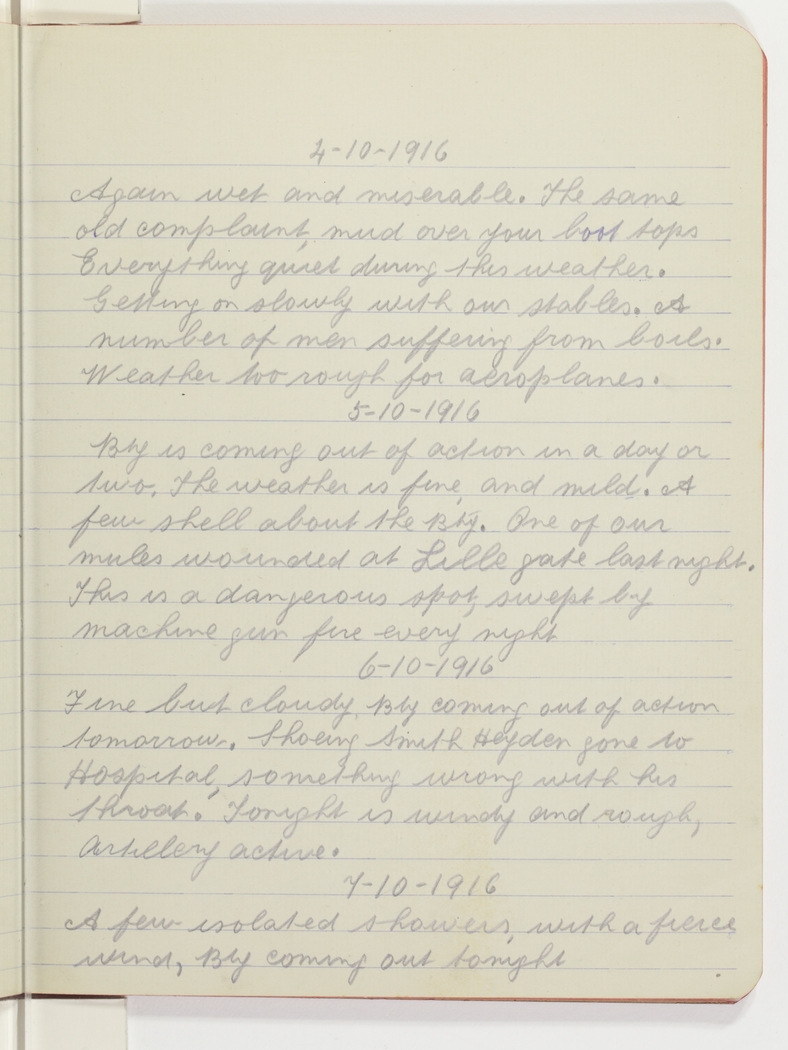 4-10-1916
Again wet and miserable. The same
old complaint, mud over your boot tops
Everything quiet during this weather.
Getting on slowly with our stables. A
number of men suffering from boils.
Weather too rough for aeroplanes.
5-10-1916
Bty is coming out of action in a day or
two. The weather is fine, and mild. A
few shell about the Bty. One of our
mules wounded at Lille gate last night.
This is a dangerous spot, swept by
machine gun fire every night
6-10-1916
Fine but cloudy, Bty coming out of action
tomorrow. Shoeing Smith Heyden gone to
Hospital, something wrong with his
throat. Tonight is windy and rough,
Artillery active.
7-10-1916
A few isolated showers, with a fierce
wind, Bty coming out tonight